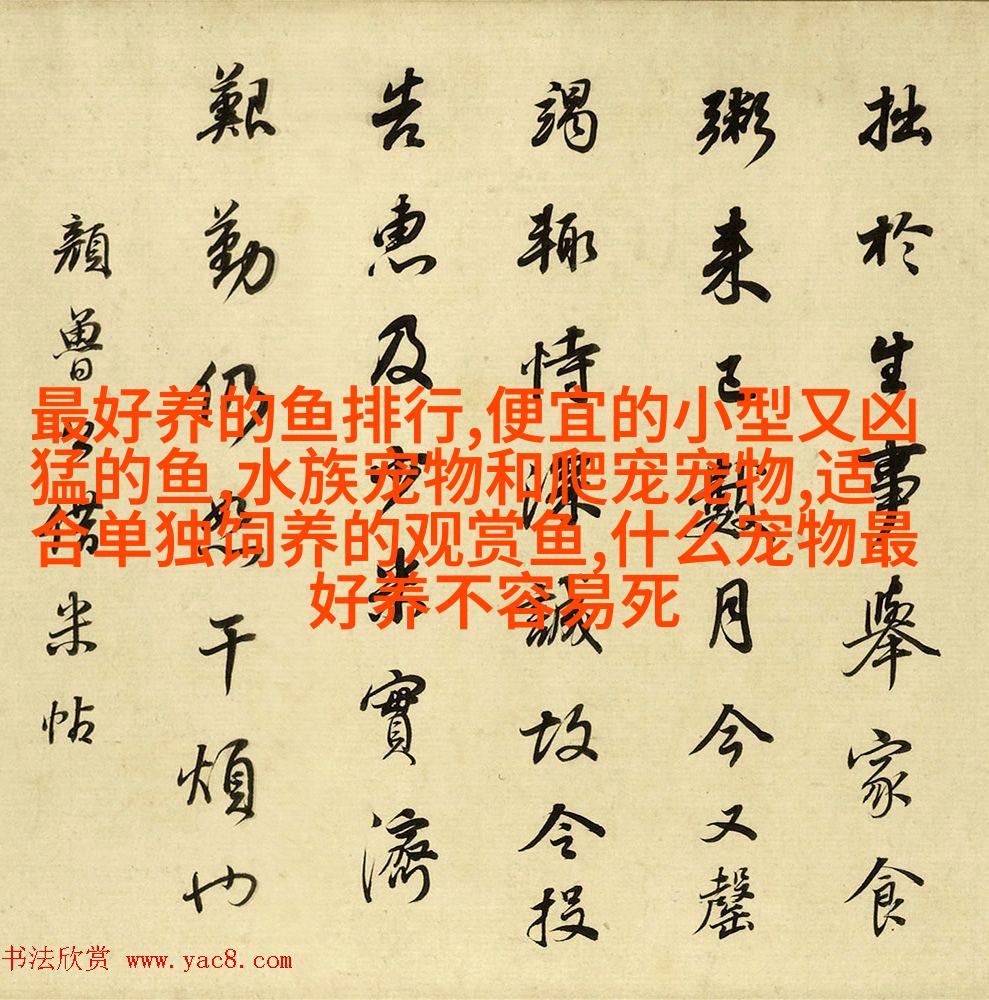 拙於生事舉家食
粥来已數月今又罄
竭輙恃深誠故令投
告惠及少米實濟
艱勤仍恕干煩也
顔魯公借米帖
最好养的鱼排行,便宜的小型又凶
猛的鱼,水族宠物和爬宠宠物,适
合单独饲养的观赏鱼,什么宠物最
好养不容易死
书法欣赏 www.yac8.com